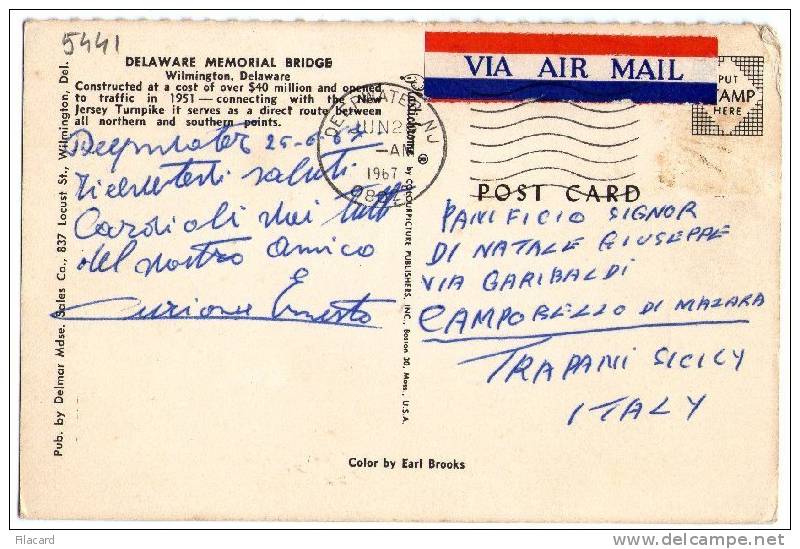 5441
DELAWARE MEMORIAL BRIDGE
Wilmington, Delaware
Constructed at a cost of over $40 million and opened
to traffic in 1951 — connecting with the New
Jersey Turnpike it serves as a direct route between
all northern and southern points.
Deepwater 25-6-67
saluti
Cardiali
del nostro amico
Ernesto
Pub. by Delmar Mdse. Sales Co., 837 Locust St., Wilmington, Del.
Plastichrome ® by COLOURPICTURE PUBLISHERS, INC., Boston 30, Mass., U.S.A.
DEEPWATER, NJ
JUN 2
AM
1967
VIA AIR MAIL
PUT
STAMP
HERE
POST CARD
PANIFICIO SIGNOR
DI NATALE GIUSEPPE
VIA GARIBALDI
CAMPOBELLO DI MAZARA
TRAPANI SICILY
ITALY
Color by Earl Brooks
Filacard
www.delcampe.net